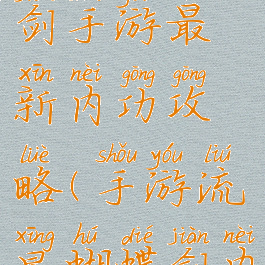 剑手游最
xīn nèi gōng gōng
新内功攻
lüè shǒu yóu liú
略(手游流
xīng hú dié jiàn nèi
星蝴蝶剑内